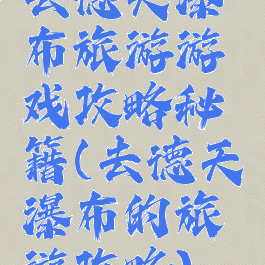 去德天瀑
布旅游游
戏攻略秘
籍(去德天
瀑布的旅
游攻略)